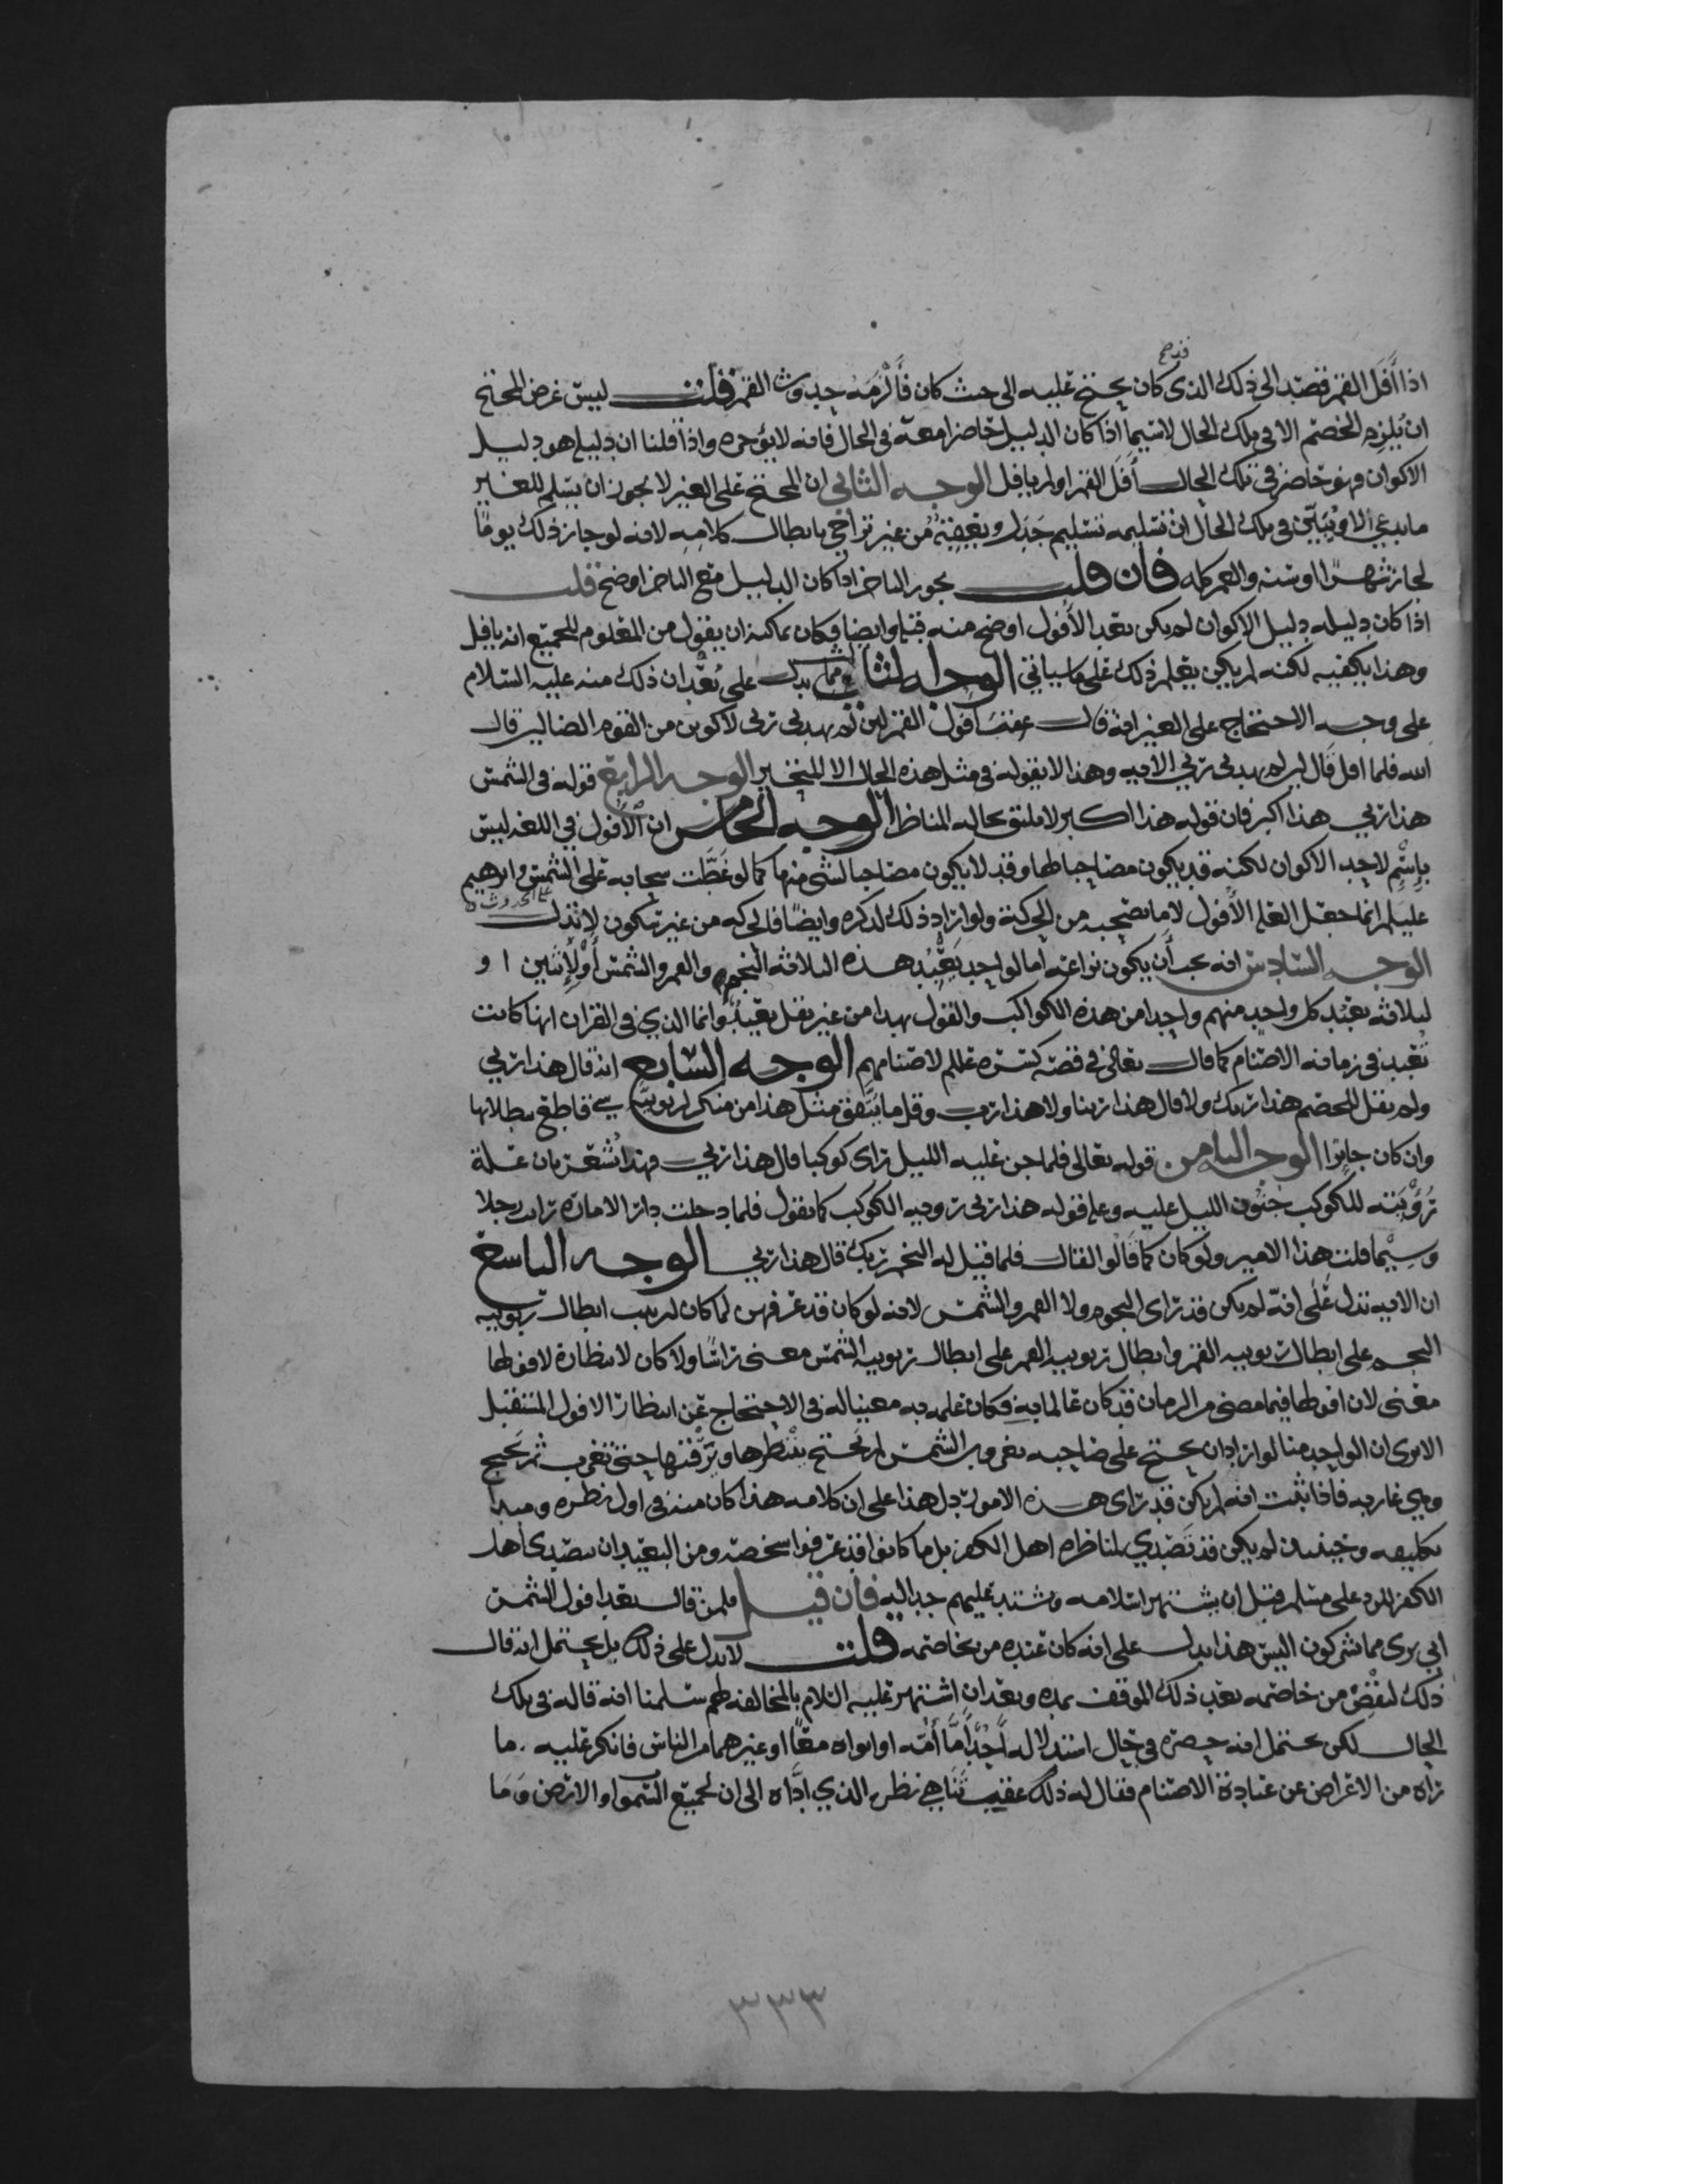 قدح
اذا أَفَلَ القمر قصد الى ذلك الذى كان يحتج عليه الى حيث كان فَأَلْزمَهُ حدوث القمر قلت ليس غرض المحتج
ان يُلزِم الخصم الا فى تلك الحال لا سيما اذا كان الدليل حاضرا معه فى الحال فانه لا يؤخره واذا قلنا ان دليله هو دليل
الاكوان فهو حاضر فى تلك الحال أَفَلَ القمر او لم يافل الوجه الثانى ان المحتج على الغير لا يجوز ان يسلم للغير
ما يدعى الا ويُبَيِّن فى تلك الحال ان تسليمه تسليم جَدَل ويعقبه من غير تراخى بابطال كلامه لانه لو جاز ذلك يومًا
لجاز شهرًا او سنه والعمر كله فان قلت يجوز التاخر اذا كان الدليل مع التاخر اوضح قلت
اذا كان دليله دليل الاكوان لم يكن بعد الأُفول اوضح منه قبل وايضا فكان يمكنه ان يقول من المعلوم للجميع انه يافل
وهذا يكفيه لكنه لم يكن يعلم ذلك على ما سياتى الوجه الثالث مما يدل على بُعْد ان ذلك منه عليه السلام
على وجه الاحتجاج على الغير انه قال عقيب افول القمر لئن لم يهدنى ربى لاكونن من القوم الضالين قال
الله فلما افل قال لئن لم يهدنى ربى الايه وهذا لا يقوله فى مثل هذه الحال الا المتحير الوجه الرابع قوله فى الشمس
هذا ربى هذا اكبر فان قوله هذا اكبر لا يليق بحال المناظر الوجه الخامس ان الأُفول فى اللغه ليس
باسم لاحد الاكوان لكنه قد يكون مصاحبا لها وقد لا يكون مصاحبا لشى منها كما لو غَطَّت سحابه على الشمس وابرهيم
عليلم انما جعل العله الأُفول لا ما يصحبه من الحركة ولو اراد ذلك لذكره وايضًا فالحركه من غير تكون لا تدل على الحدوث
الوجه السادس انه يجب أن يكون نزاعه اما لواحد يَعْبُد هذه الثلاثه النجم والقمر والشمس أَوْ لإثنين ا و
لثلاثه يعبد كل واحد منهم واحدا من هذه الكواكب والقول بهذا من غير نقل بعيد وانما الذي فى القران انها كانت
تُعْبد فى زمانه الاصنام كما قال تعالى فى قصه كسره عللم لاصنامهم الوجه السابع انه قال هذا ربى
ولم يقل للخصم هذا ربك ولا قال هذا ربنا ولا هذا رب وقل ما يَتَّفق مثل هذا من منكر لربوبيّه شى قاطع ببطلانها
وان كان جايزا الوجه الثامن قوله تعالى فلما جن عليه الليل راى كوكبا قال هذا ربى فهذا يُشعر بان علة
رُؤْيَته للكوكب جنون الليل عليه وعله قوله هذا ربى رويه الكوكب كما تقول فلما دخلت دار الاماره رايت رجلا
وسيْما قلت هذا الامير ولو كان كما قَالُوا لقال فلما قيل له النجم ربك قال هذا ربى الوجه التاسع
ان الايه تدل عَلَى انه لم يكن قد راى النجوم ولا القمر والشمس لانه لو كان قد عرفهن لما كان لترتيب ابطال ربوبيه
النجم على ابطال ربوبيه القمر وابطال ربوبيه القمر على ابطال ربوبيه الشمس معنى راسًا ولا كان لانتظاره لافولها
معنى لان افولها فيما مضى من الزمان قد كان عالما به فكان علمه به مغنيا له فى الاحتجاج عن انتظار الافول المستقبل
الا ترى ان الواحد منا لو اراد ان يحتج على صاحبه بغروب الشمس لم يحتج ينتظرها ويَرْقبها حتى تغرب ثم يحتج
وهى غاربه فاذا ثبت انه لم يكن قد راى هذه الامور دل هذا على ان كلامه هذا كان منه فى اول نظره ومبدا
تكليفه وحينئذ لم يكن قد تَصَدّى لمناظرة اهل الكفر بل ما كانوا قد عرفوا شخصه ومن البعيد ان يتصدى اهل
الكفر للرد على مسلم قبل ان يشتهر اسلامه ويشتد عليهم جداله فان قيل فلمن قال بعد افول الشمس
انى برى مما تشركون اليس هذا يدل على انه كان عنده من يخاصمه قلت لا يدل على ذلك بل يحتمل انه قال
ذلك لبَعْض من خاصمه بعد ذلك الموقف بمده وبعد ان اشتهر عليه السلام بالمخالفه لهم سلمنا انه قاله فى تلك
الحال لكن يحتمل انه حضره فى حال استدلاله أَحَدٌ إمَّا أمّه او ابواه معًا او غيرهما من الناس فانكر عليه ما
راه من الاعراض عن عبادة الاصنام فقال له ذلك عقيب تَنَاهى نظره الذي ادَّاه الى ان لجميع السموات والارض وَمَا
٣٣٣